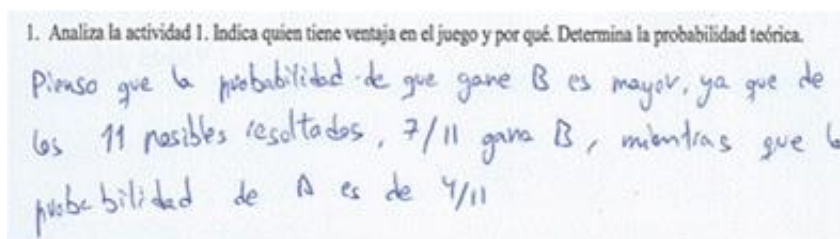 1. Analiza la actividad 1. Indica quien tiene ventaja en el juego y por qué. Determina la probabilidad teórica.
Pienso que la probabilidad de que gane B es mayor, ya que de
los 11 posibles resoltados, 7/11 gana B, mientras que la
probabilidad de A es de 4/11